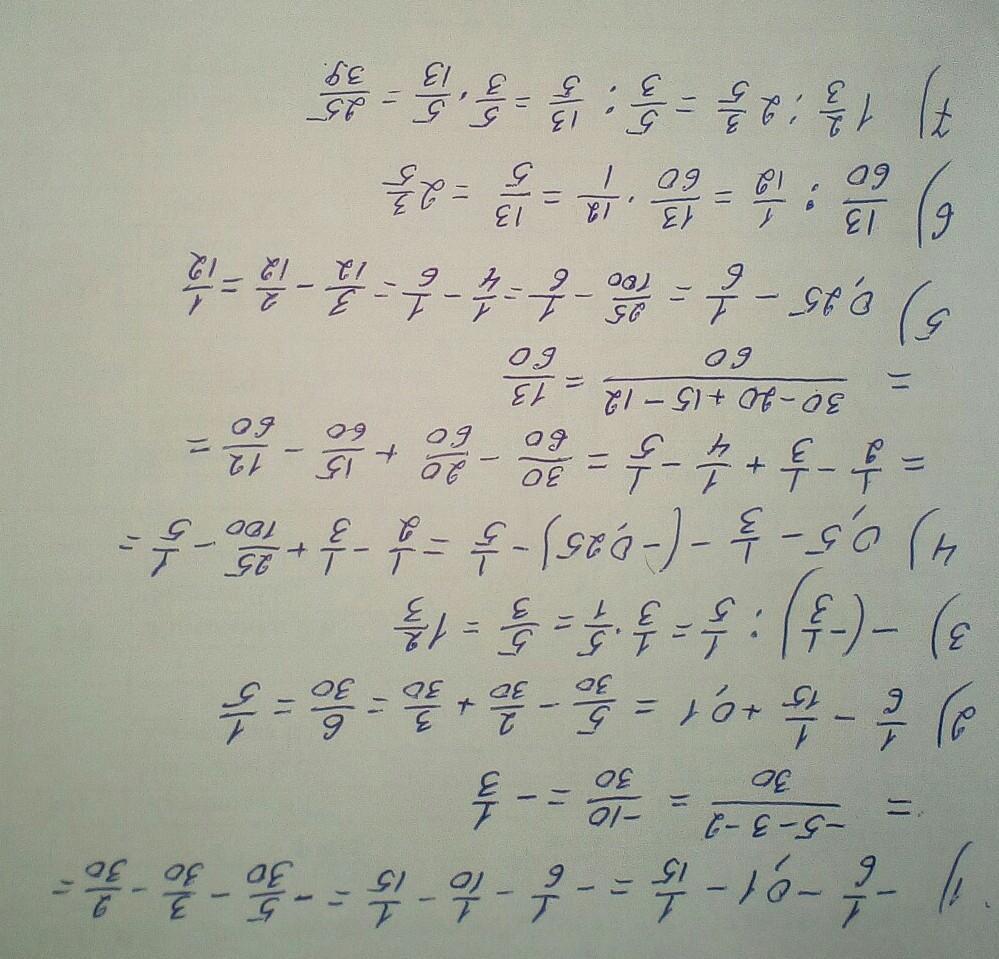 1) -1/6 - 0,1 - 1/15 = -1/6 - 1/10 - 1/15 = -5/30 - 3/30 - 2/30 =
= (-5-3-2)/30 = -10/30 = -1/3
2) 1/6 - 1/15 + 0,1 = 5/30 - 2/30 + 3/30 = 6/30 = 1/5
3) -(-1/3) : 1/5 = 1/3 · 5/1 = 5/3 = 1 2/3
4) 0,5 - 1/3 - (-0,25) - 1/5 = 1/2 - 1/3 + 25/100 - 1/5 =
= 1/2 - 1/3 + 1/4 - 1/5 = 30/60 - 20/60 + 15/60 - 12/60 =
= (30-20+15-12)/60 = 13/60
5) 0,25 - 1/6 = 25/100 - 1/6 = 1/4 - 1/6 = 3/12 - 2/12 = 1/12
6) 13/60 : 1/12 = 13/60 · 12/1 = 13/5 = 2 3/5
7) 1 2/3 : 2 3/5 = 5/3 : 13/5 = 5/3 · 5/13 = 25/39